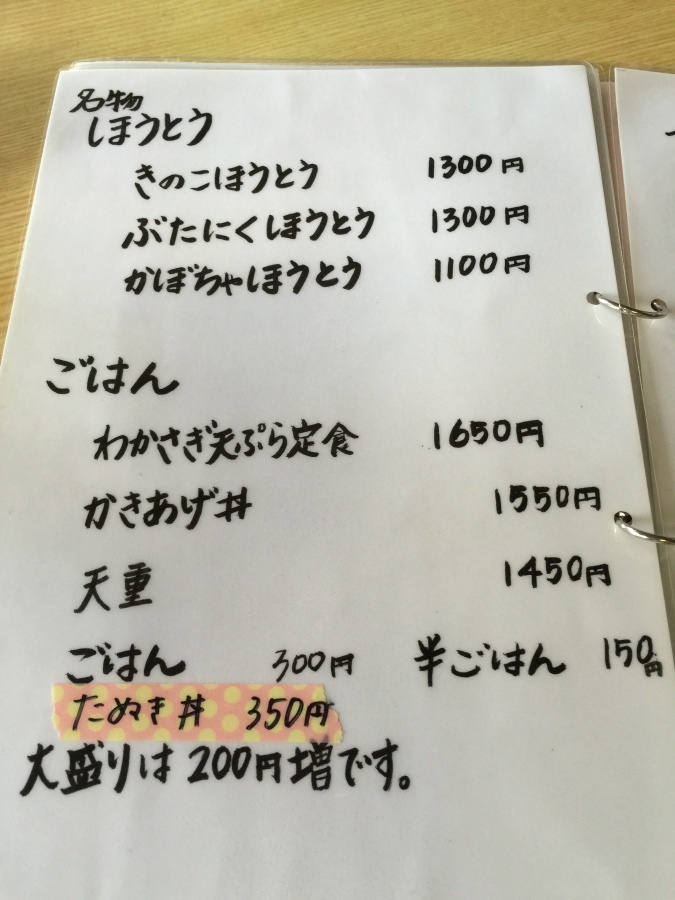 名物
ほうとう
きのこほうとう 1300円
ぶたにくほうとう 1300円
かぼちゃほうとう 1100円
ごはん
わかさぎ天ぷら定食 1650円
かきあげ丼 1550円
天重 1450円
ごはん 300円 半ごはん 150円
たぬき丼 350円
大盛りは200円増です。